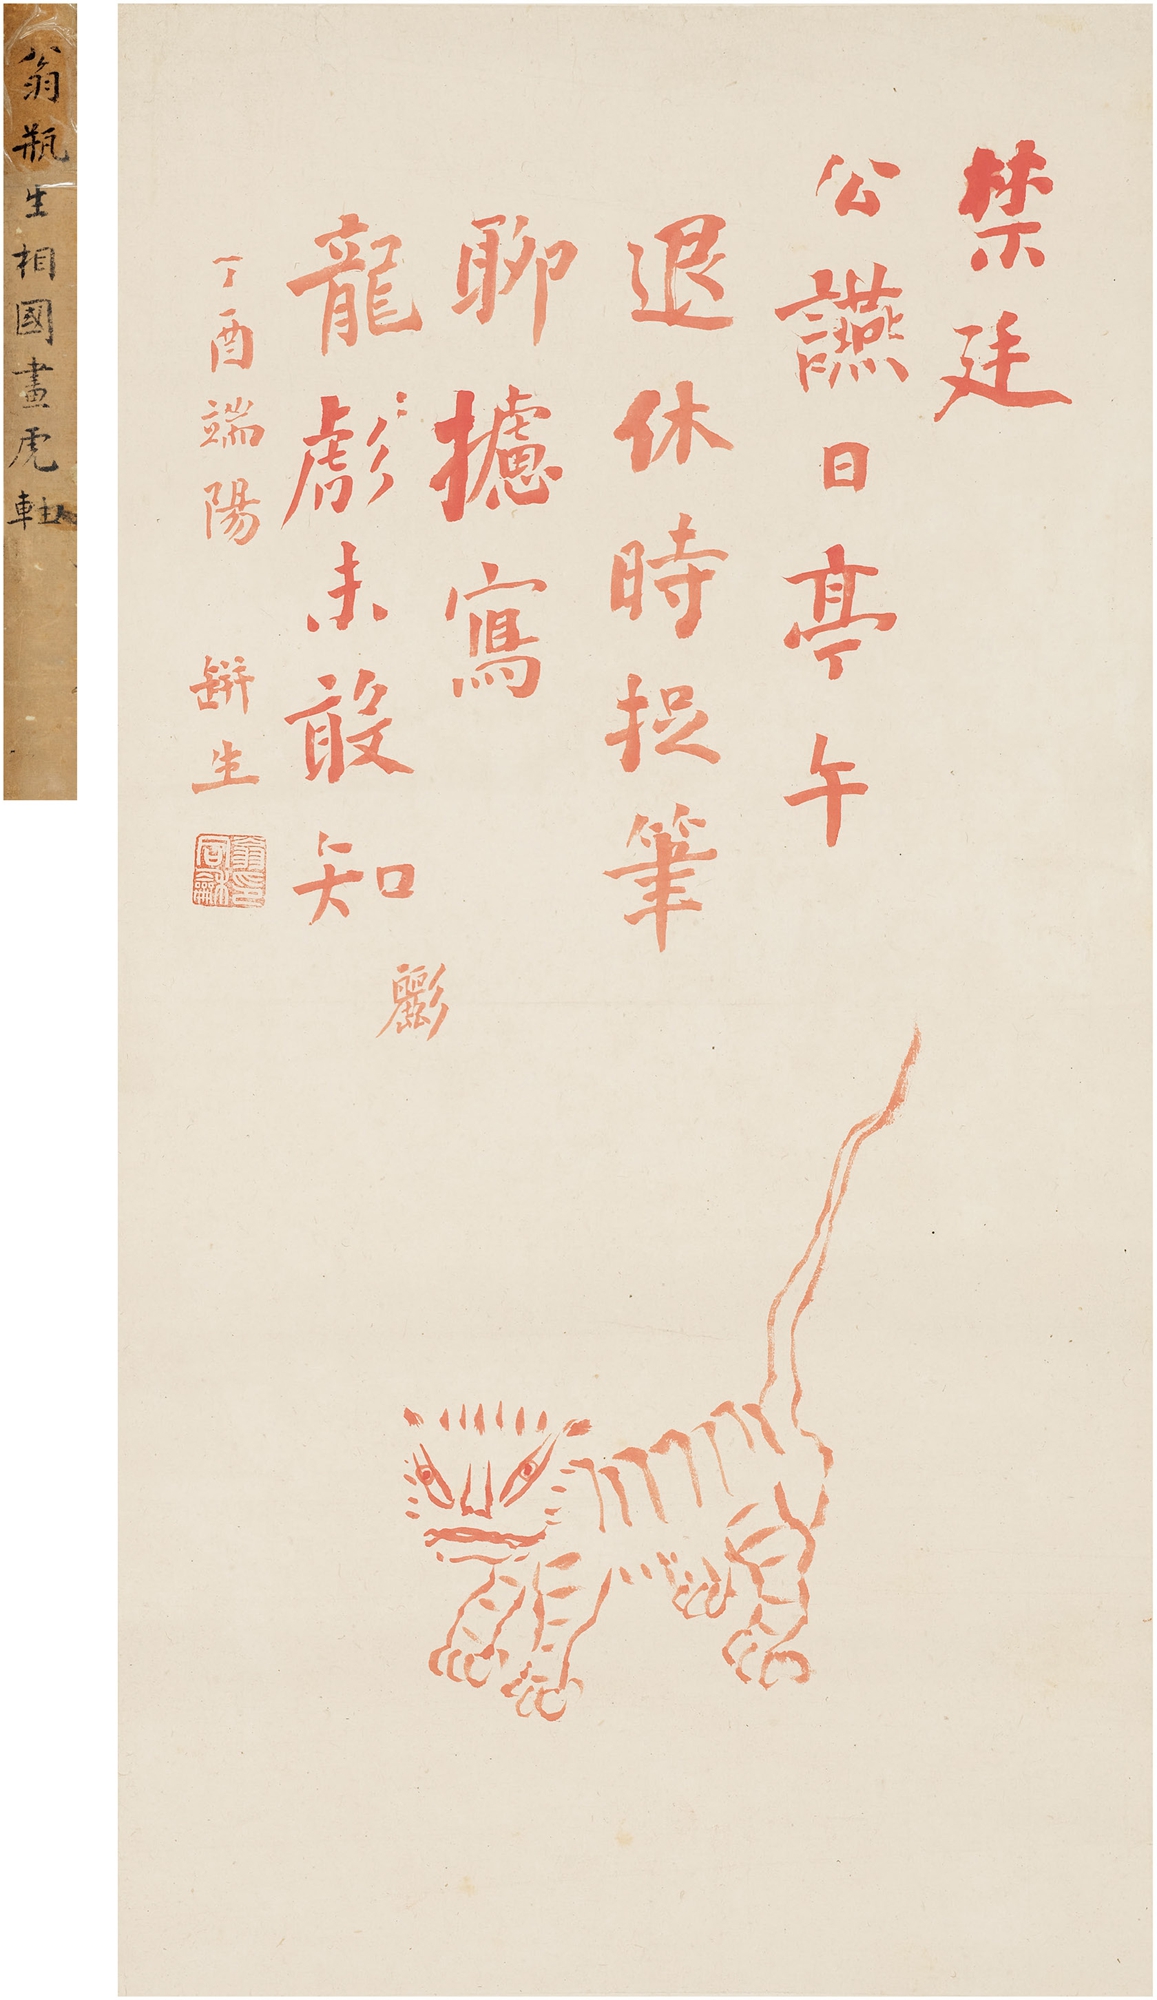 禁廷
公讌日亭午
退休時捉筆
聊攄寫
龍未敢知
丁酉端陽 缾生
翁同龢印
翁瓶生相國畫虎軸